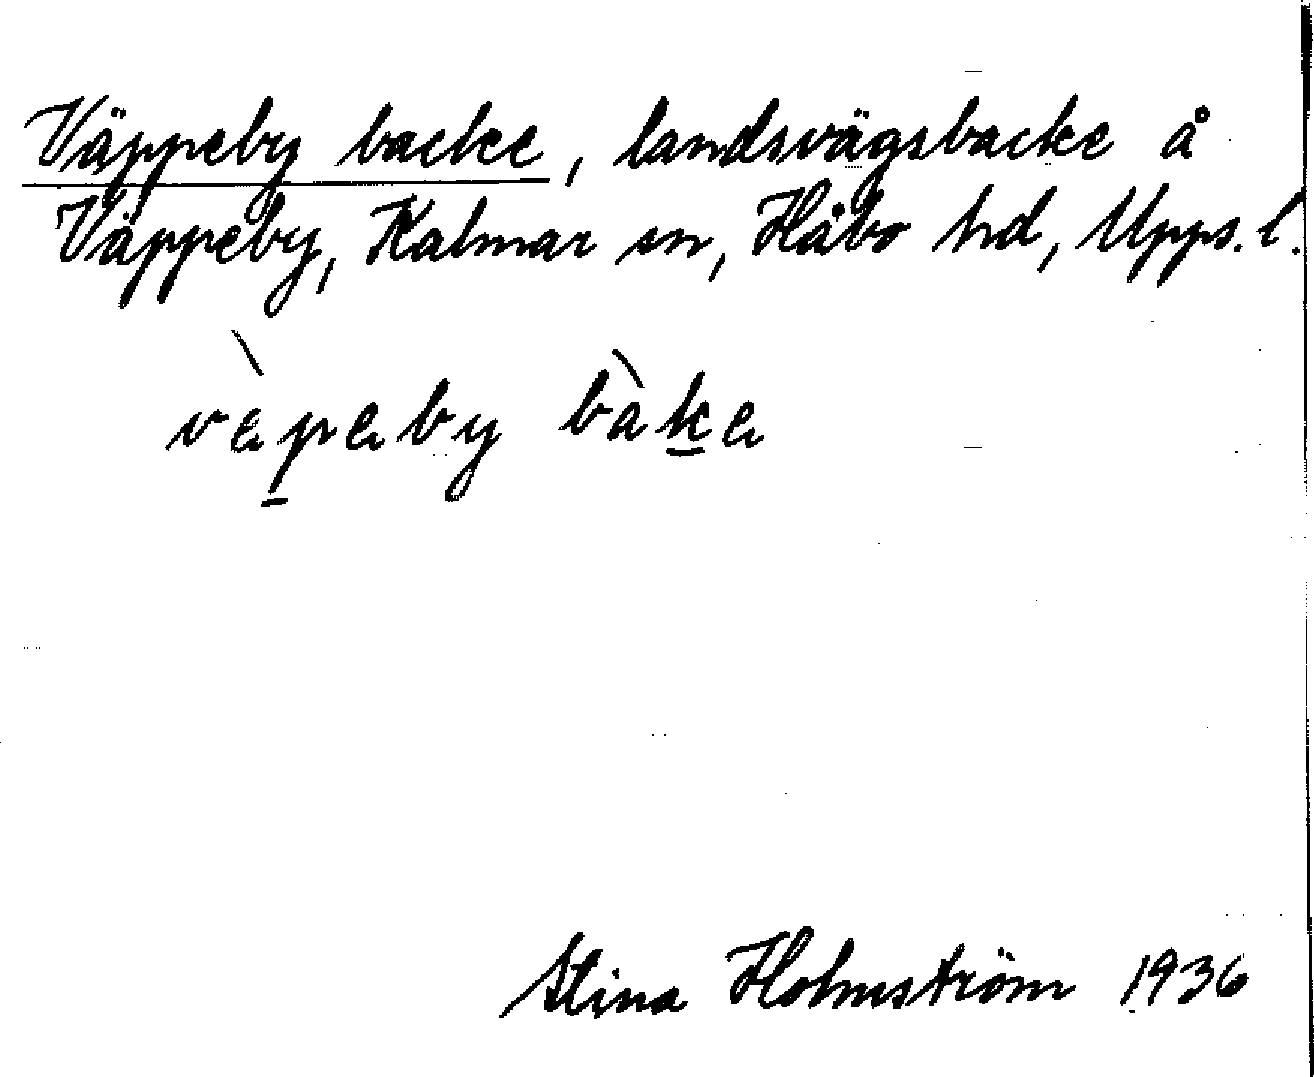 Väppeby backe, landsvägsbacke å
Väppeby, Kalmar sn, Håbo hd, Upps. l.
vèpeby bàke
Stina Holmström 1936